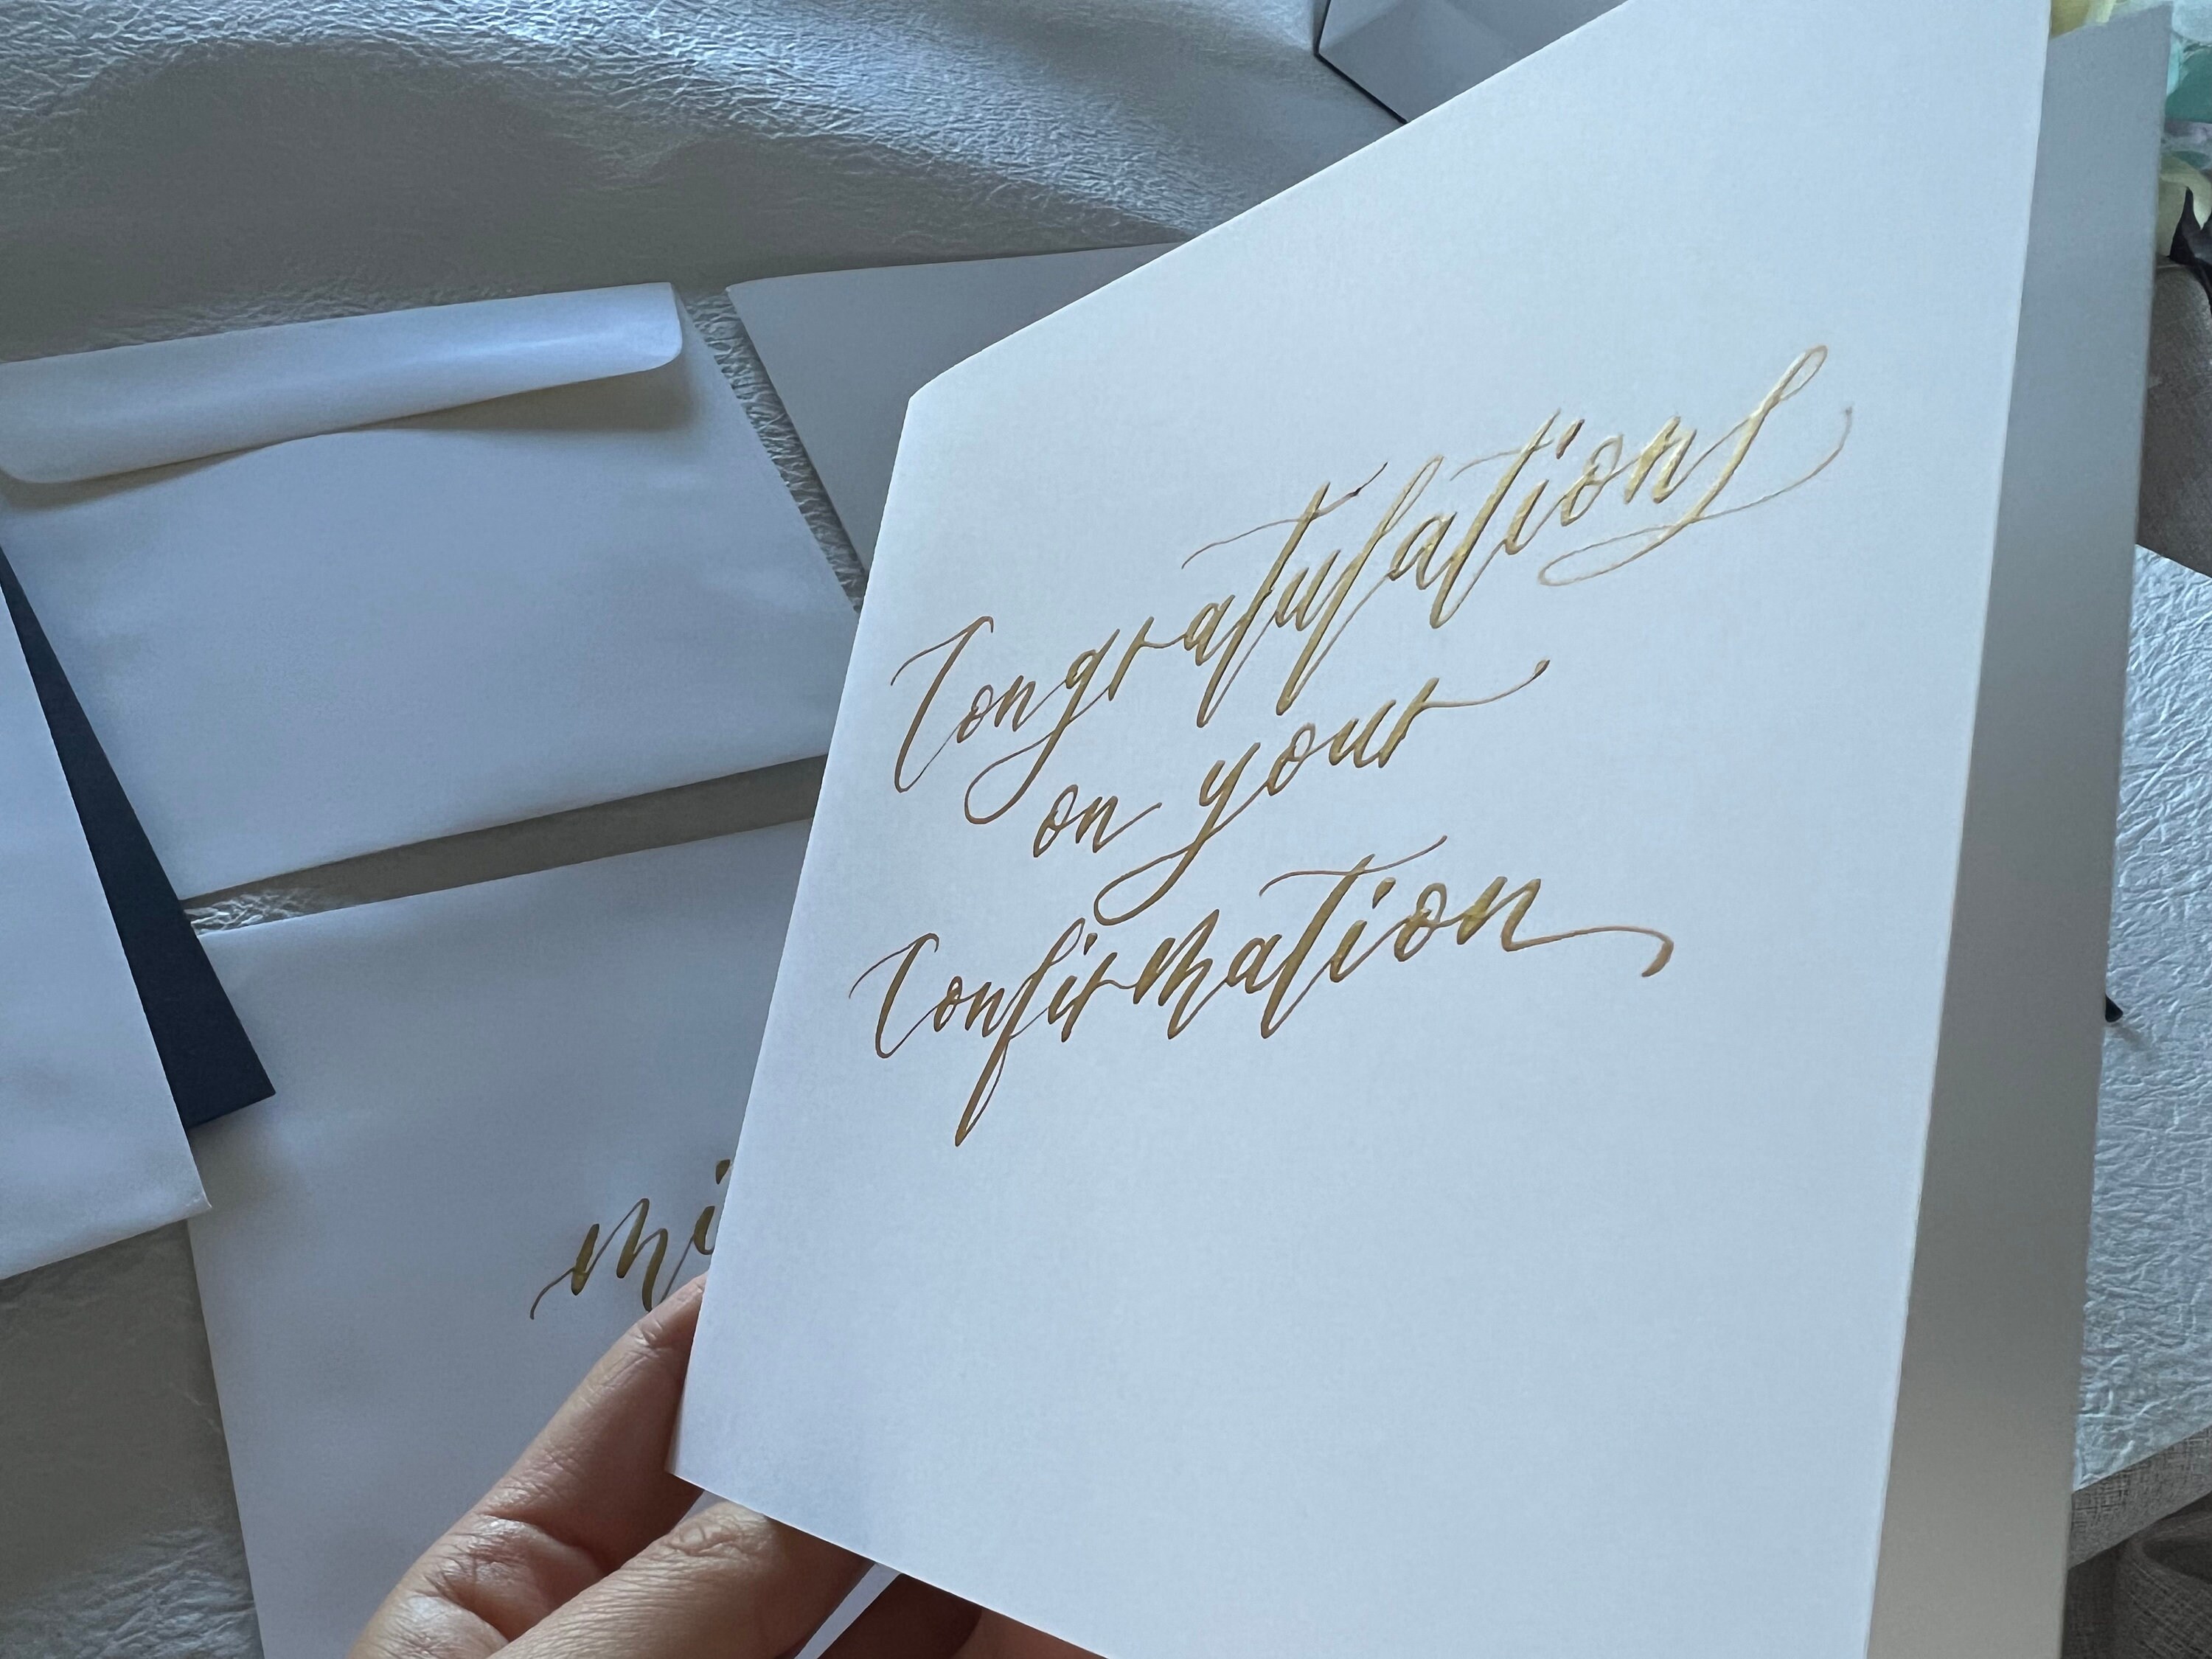 Congratulations
on your
Confirmation
mi